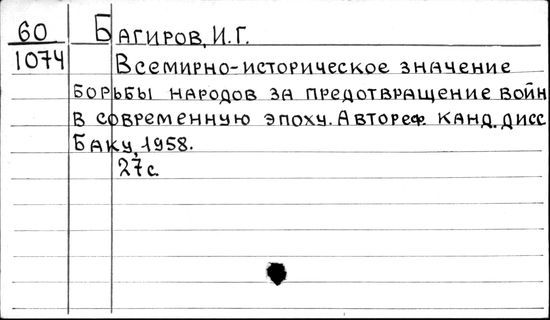 60 Багиров, И.Г.
1074 Всемирно-историческое значение
борьбы народов за предотвращение войн
в современную эпоху. Автореф. канд. дисс
Баку, 1958.
27с.